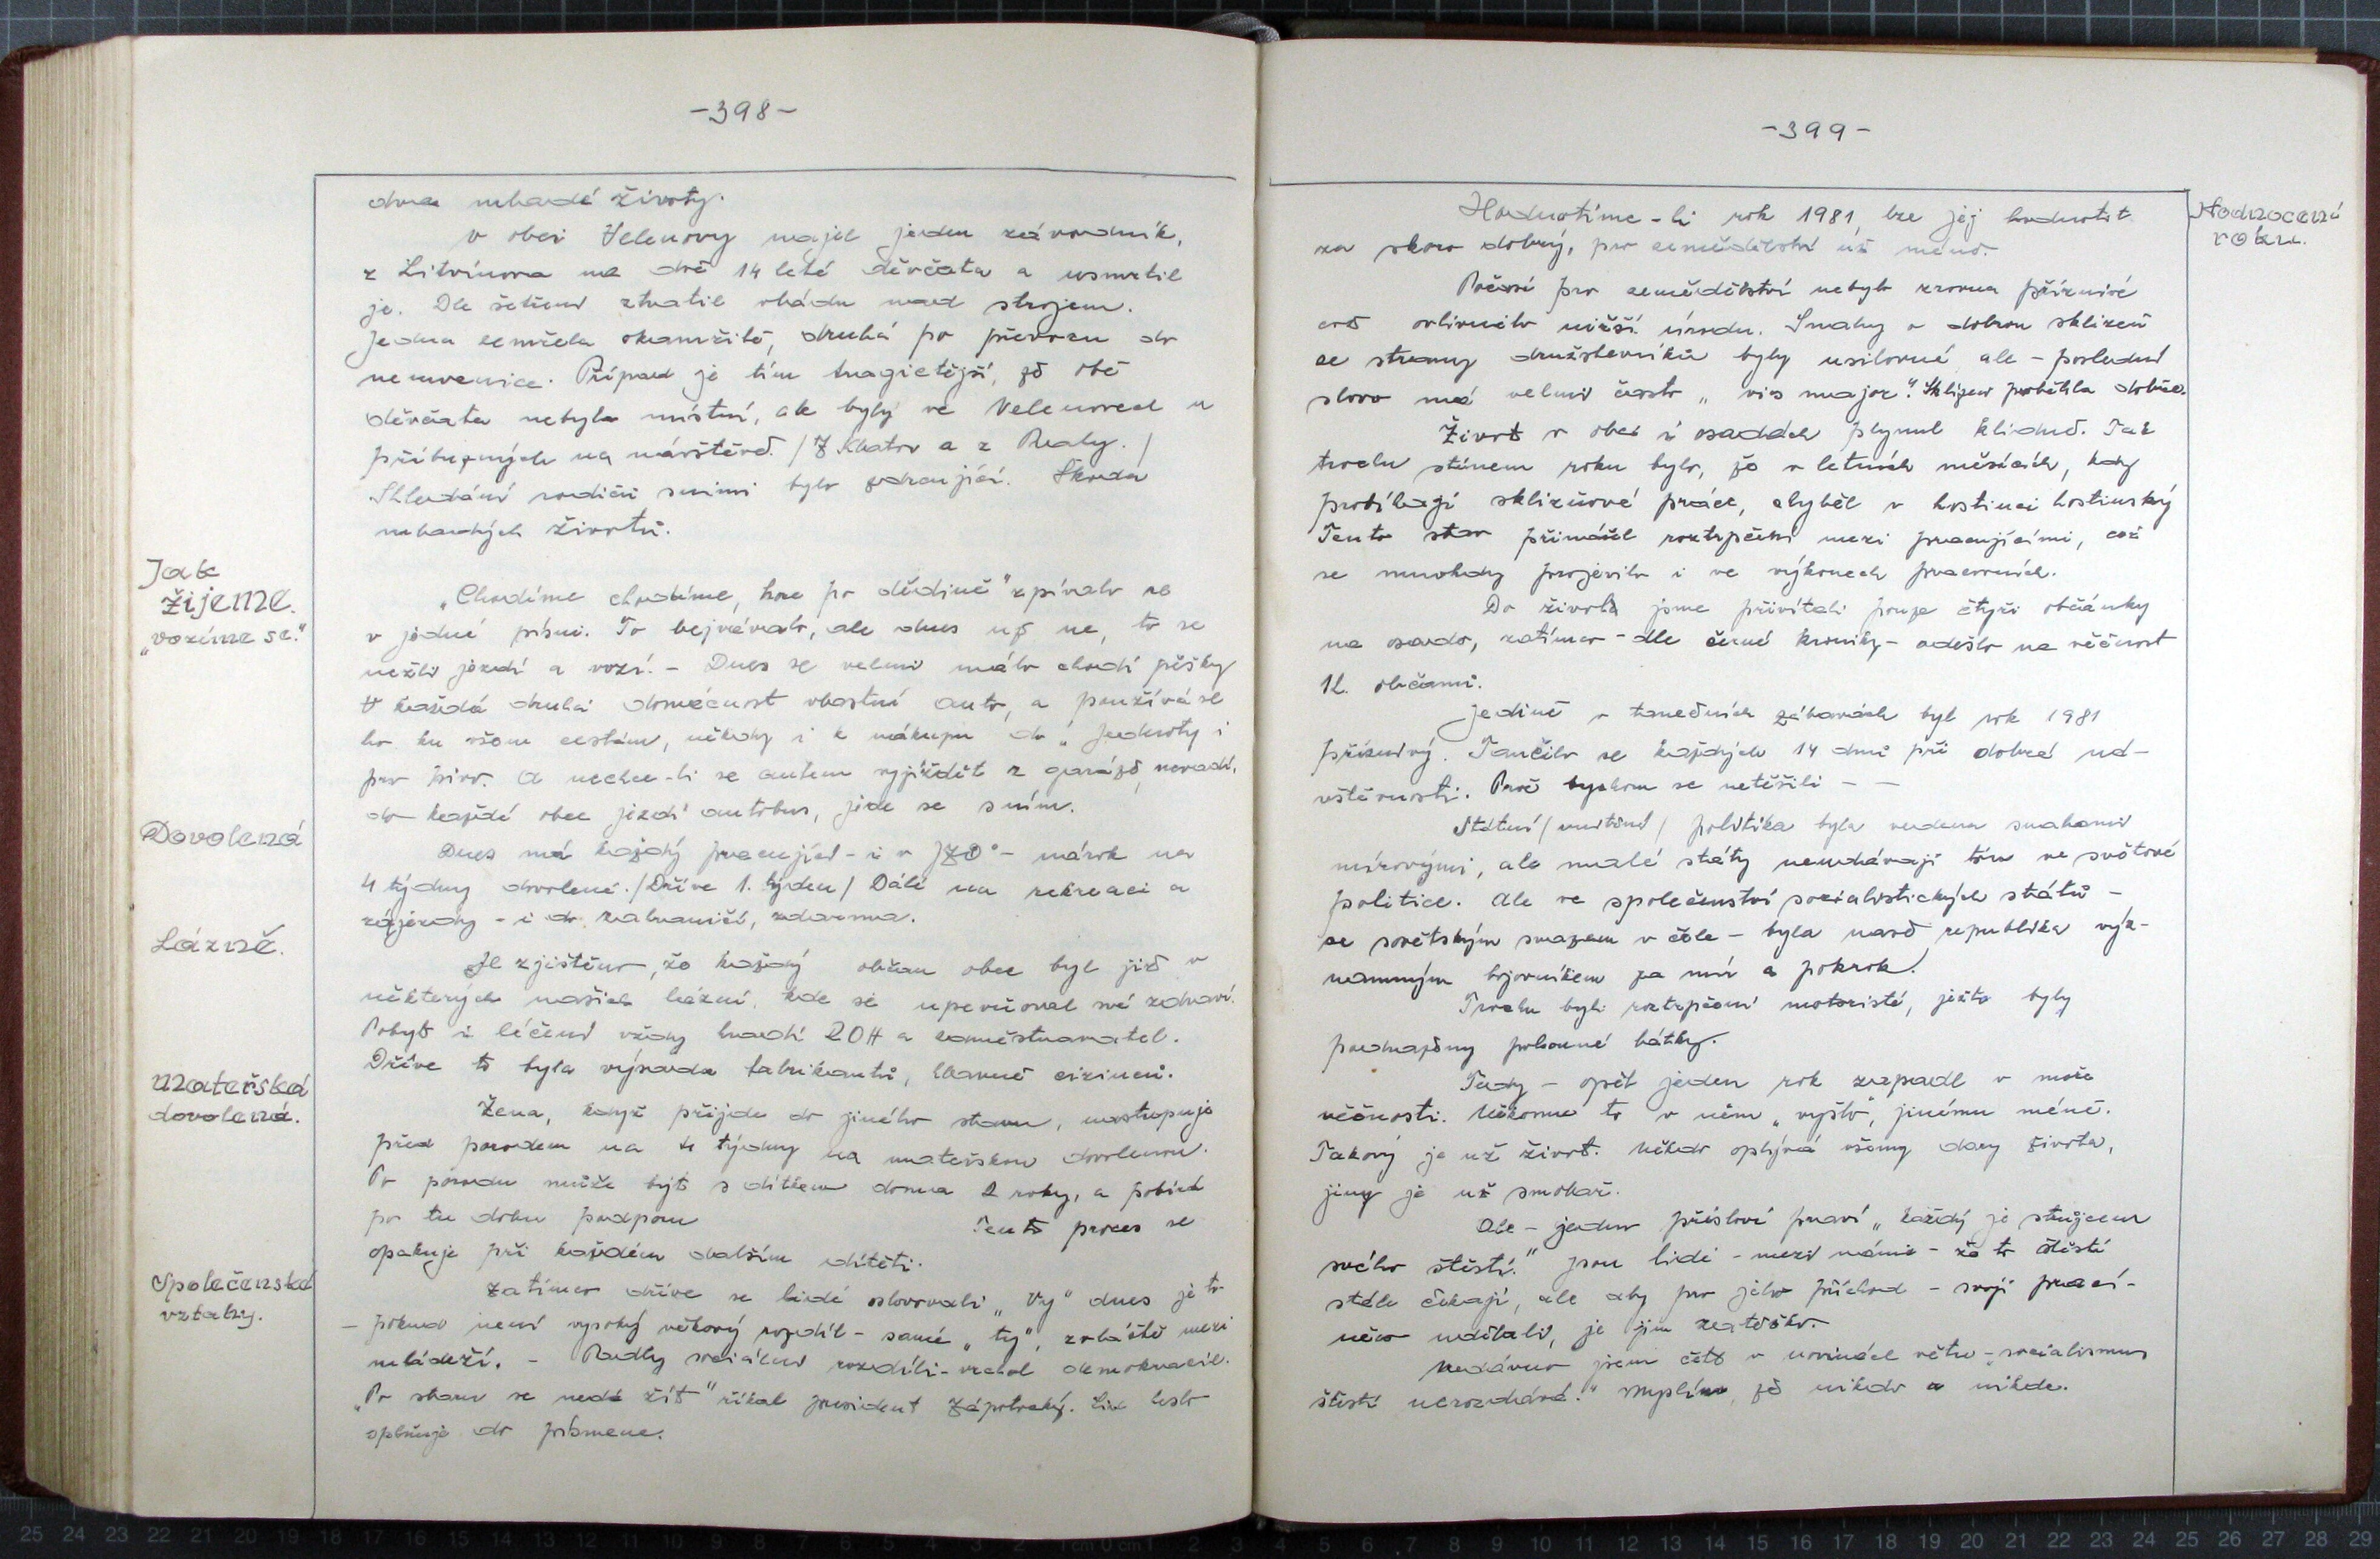 -398-
dva mladé životy.
V obci Velenovy najel jeden závodník,
z Litvínova na dvě 14 leté děvčata a usmrtil
je. Dle šetření ztratil vládu nad strojem.
Jedna zemřela okamžitě, druhá po převozu do
nemocnice. Případ je tím tragičtější, že obě
děvčata nebyla místní, ale byly ve Velenovech u
příbuzných na návštěvě. / Z Klatov a z Prahy. /
Shledání rodičů s nimi bylo zdrcující. Škoda
mladých životů.
Jak
žijeme.
„vozíme se."
„Chodíme chodíme, hore po dědině" zpívalo se
v jedné písni. To bejvávalo, ale dnes už ne, to se
nežli jezdí a vozí. - Dnes se velmi málo chodí pěšky
V každá druhá domácnost vlastní auto, a používá se
ho ku všem cestám, někdy i k nákupu do „Jednoty i
pro pivo. A nechce-li se autem vyjíždět z garáže, nevadí,
do každé obce jezdí autobus, jede se s ním.
Dovolená
Dnes má každý pracující - i v JZD - nárok na
4 týdny dovolené. / Dříve 1. týden / Dále na rekreaci a
zájezdy - i do zahraničí, zdarma.
Lázně.
Je zjištěno, že každý občan obce byl již v
některých našich lázní, kde si upevňoval své zdraví.
Pobyt i léčení vždy hradí ROH a zaměstnavatel.
Dříve to byla výsada fabrikantů, hlavně cizinců.
Mateřská
dovolená.
Žena, když přijde do jiného stavu, nastupuje
před porodem na 4 týdny na mateřskou dovolenou.
Po porodu může být s dítětem doma 2 roky, a pobírá
po tu dobu podporu Tento proces se
opakuje při každém dalším dítěti.
Společenské
vztahy.
Zatímco dříve se lidé oslovovali „Vy" dnes je to
- pokud není vysoký věkový rozdíl - samé „ty", zvláště mezi
mládeží. - Padly sociální rozdíli - vrchol demokracie.
„Po staru se nedá žít" říkal president Zápotocký. Lid heslo
splňuje do písmene.
-399-
Hodnocení
roku.
Hodnotíme-li rok 1981, lze jej hodnotit
za skoro dobrý, pro zemědělství už méně.
Počasí pro zemědělství nebylo zrovna příznivé
což ovlivnilo nižší úrodu. Snahy o dobrou sklizeň
ze strany družstevníků byly usilovné ale - poslední
slovo má velmi často „vis major". Sklizeň proběhla dobře.
Život v obci i osadách plynul klidně. Tak
trochu stínem roku bylo, že v letních měsících, kdy
probíhají sklizňové práce, chyběl v hostinci hostinský
Tento stav přinášel roztrpčení mezi pracujícími, což
se mnohdy projevilo i ve výkonech pracovních.
Do života jsme přivítali pouze čtyři občánky
na osado, zatímco - dle černé kroniky - odešlo na věčnost
12. občanů.
Jedině v tanečních zábavách byl rok 1981
příznivý. Tančilo se každých 14 dnů při dobré ná-
vštěvnosti. Proč bychom se netěšili - -
Státní / vnitřní / politika byla vedena snahami
mírovými, ale malé státy neudávají tón ve světové
politice. Ale ve společenství socialistických států -
se sovětským svazem v čele - byla naše republika výz-
namným bojovníkem za mír a pokrok.
Trochu byli roztrpčeni motoristé, ješto byly
podraženy pohonné látky.
Tedy - opět jeden rok zapadl v moře
věčnosti. Někomu to v něm „vyšlo", jinému méně.
Takový je už život. Někdo oplývá všemy dary života,
jiný je už smolař.
Ale - jedno přísloví praví „každý je strůjcem
svého štěstí." Jsou lidé - mezi námi - že to štěstí
stále čekají, ale aby pro jeho příchod - svojí prací -
něco udělali, je jim zatěžko.
Nedávno jsem četl v novinách větu - „socialismus
štěstí nerozdává." Myslím, že nikdo a nikde.